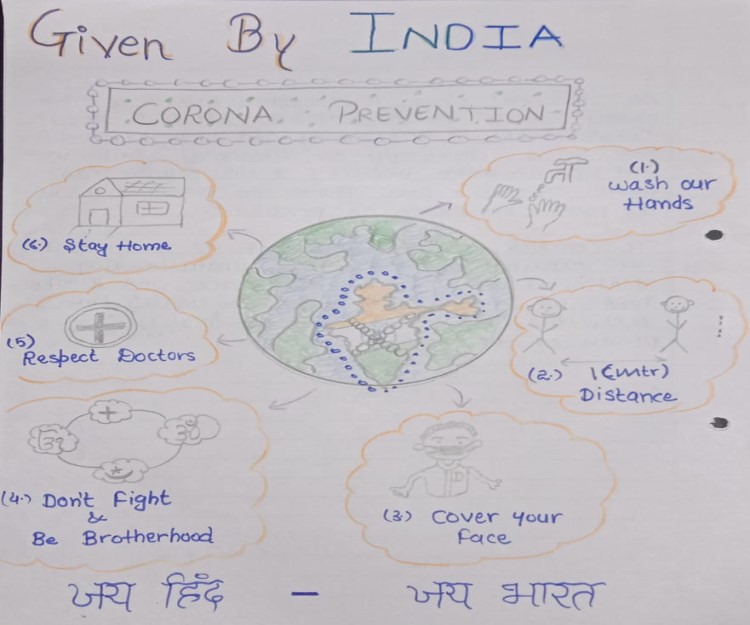 Given By INDIA
CORONA PREVENTION
(1.)
wash our
Hands
(6.) Stay Home
(5)
Respect Doctors
(2.) 1 (mtr)
Distance
(4.) Don't Fight
&
Be Brotherhood
(3.) Cover your
Face
जय हिंद - जय भारत